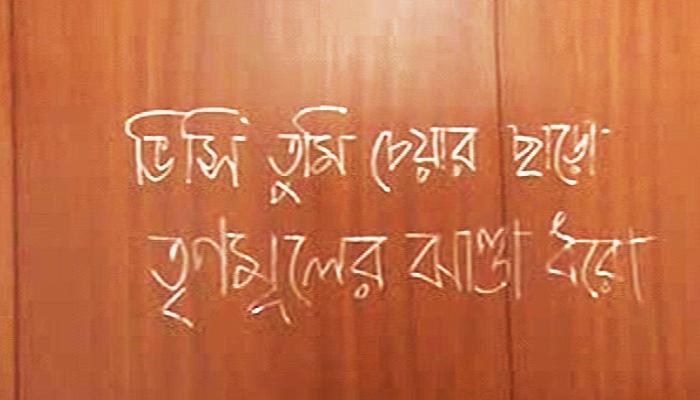 ভিসি তুমি চেয়ার ছাড়ো
তৃণমূলের ঝাণ্ডা ধরো